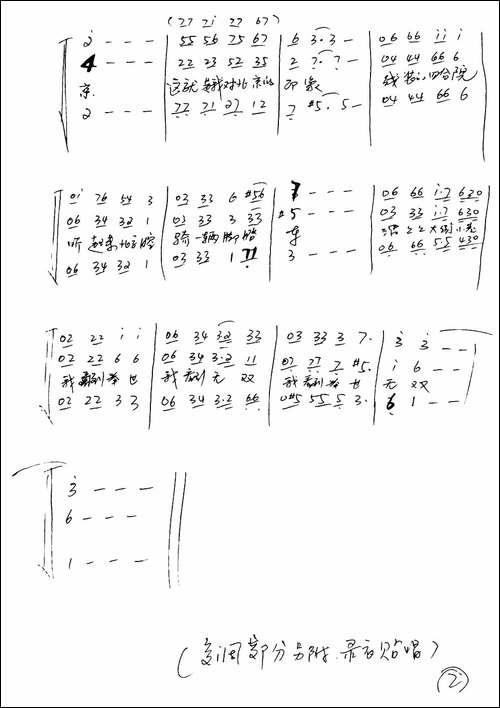 (27 2i 27 67)
2̇ - - - | 55 56 75 67 | 6 3·3 - | 06 66 i i i
4 - - - | 22 23 52 35 | 2 7·7 - | 04 44 66 6
京 这就是我对北京的 印象 四合院
2 - - - | 77 71 27 12 | 7 #5· 5 - | 04 44 66 6
0i 76 54 3 | 03 33 6 #56 | 7 - - - | 06 66 i·7 630
06 34 32 1 | 03 33 3 33 | #5 - - - | 03 33 i·7 630
听 骑一辆脚踏 车 大街小巷
06 34 32 1 | 03 33 1 11 | 3 - - - | 06 66 5·5 430
02 22 i i | 06 34 32 33 | 03 33 3 7· | 3̇ 3̇ - -
02 22 6 6 | 06 34 3·2 11 | 02 27 2 #5· | i 6 - -
我看到举世 我看到无双 我看到举世 无双
02 22 3 3 | 06 34 3·2 66 | 0#5 55 5 3· | 6 1 - -
3̇ - - -
6 - - -
1 - - -
(部分另附.录音贴唱)
②